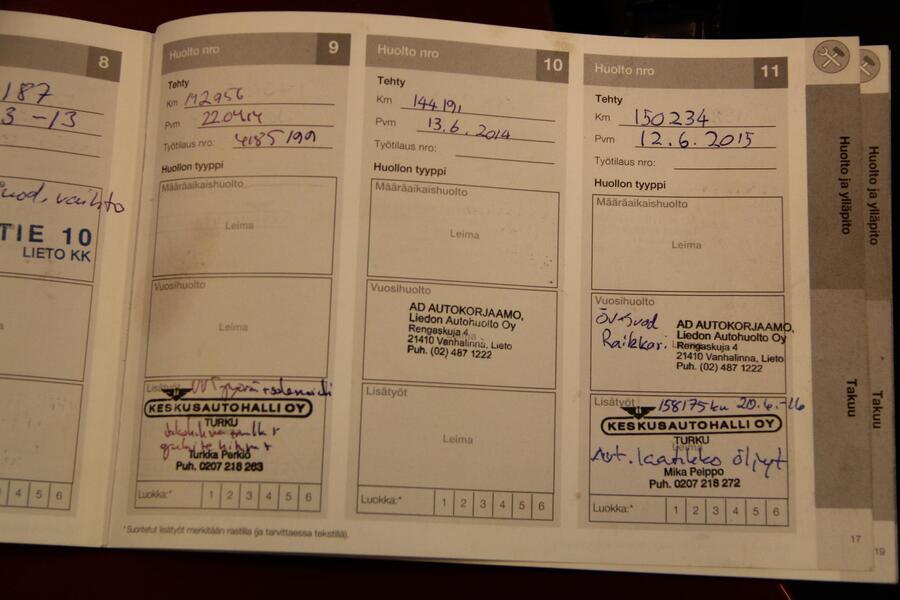 8
187
3 -13
vaihto
TIE 10
LIETO KK
4 5 6
Huolto nro 9
Tehty
Km 142956
Pvm 220414
Työtilaus nro: 4185199
Huollon tyyppi
Määräaikaishuolto
Leima
Vuosihuolto
Leima
Lisätyöt
KESKUSAUTOHALLI OY
TURKU
Turkka Perkiö
Puh. 0207 218 263
Luokka:* 1 2 3 4 5 6
*Suoritetut lisätyöt merkitään rastilla (ja tarvittaessa tekstillä).
Huolto nro 10
Tehty
Km 144191
Pvm 13.6.2014
Työtilaus nro:
Huollon tyyppi
Määräaikaishuolto
Leima
Vuosihuolto
AD AUTOKORJAAMO,
Liedon Autohuolto Oy
Rengaskuja 4
21410 Vanhalinna, Lieto
Puh. (02) 487 1222
Lisätyöt
Leima
Luokka:* 1 2 3 4 5 6
Huolto nro 11
Tehty
Km 150234
Pvm 12.6.2015
Työtilaus nro:
Huollon tyyppi
Määräaikaishuolto
Leima
Vuosihuolto
AD AUTOKORJAAMO,
Liedon Autohuolto Oy
Rengaskuja 4
21410 Vanhalinna, Lieto
Puh. (02) 487 1222
Lisätyöt 158175km 20.6.-16
KESKUSAUTOHALLI OY
TURKU
Leima
Aut.laatikko öljyt
Mika Peippo
Puh. 0207 218 272
Luokka:* 1 2 3 4 5 6
Huolto ja ylläpito
Takuu
17
Huolto ja ylläpito
Takuu
19